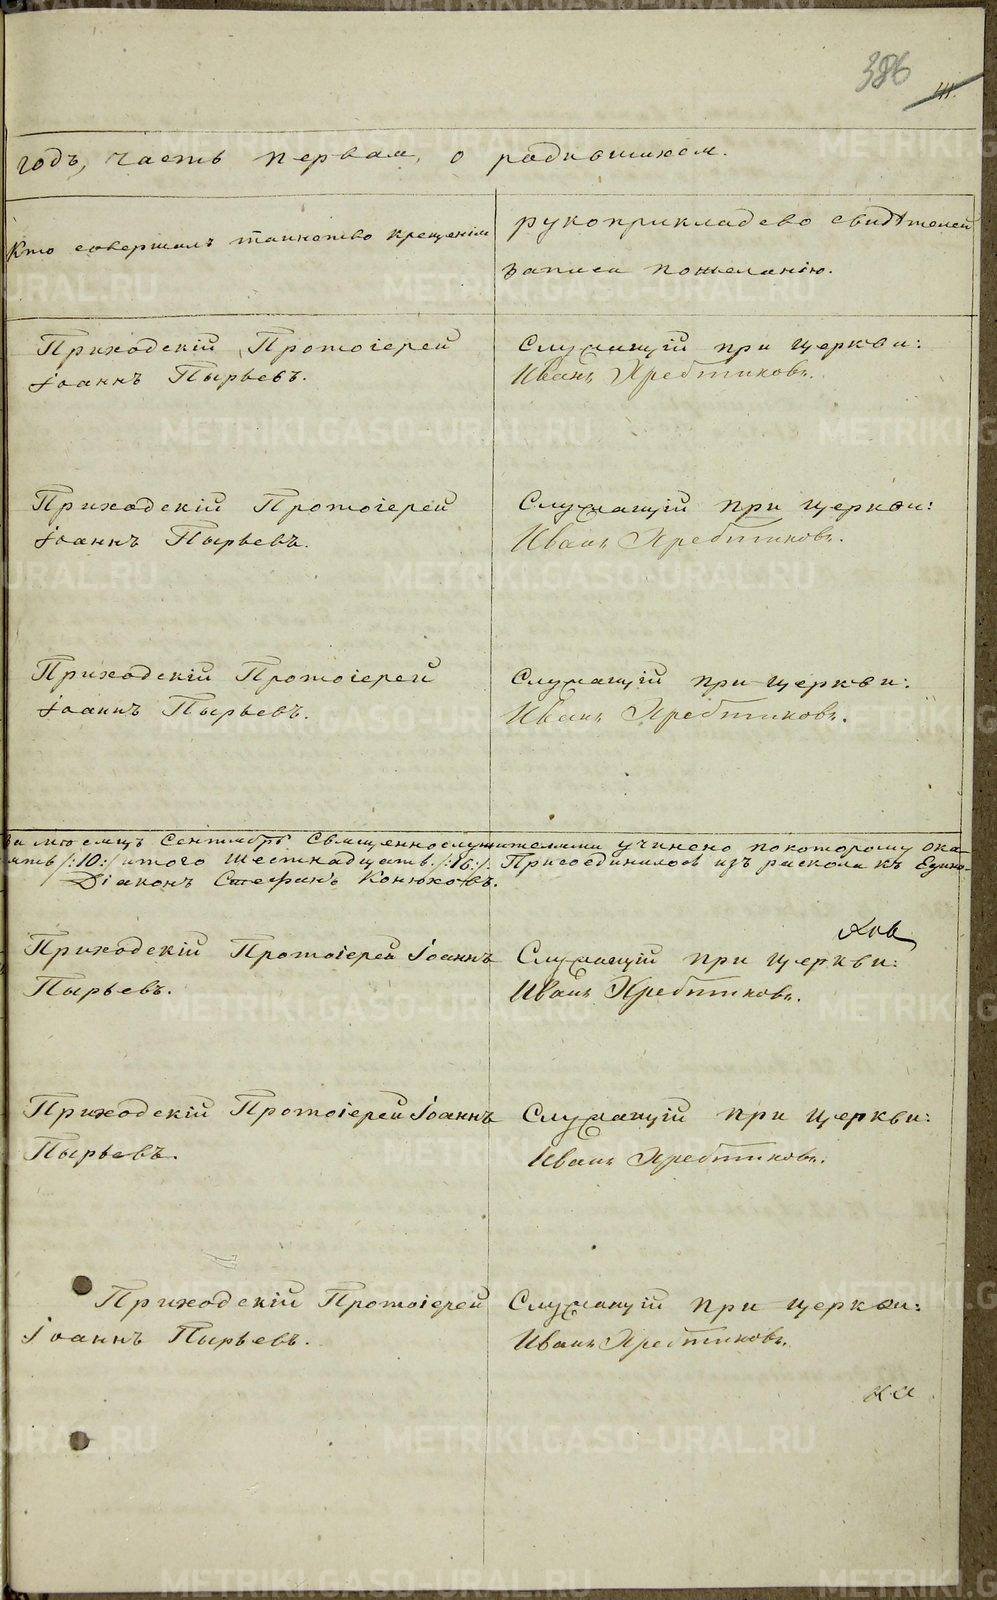 386
111.
годъ, часть первая, о родившихся.
Кто совершалъ таинство крещенія
рукоприкладсво свидѣтелей
записи пожеланію.
Приходскій Протоіерей
Іоаннъ Пырьевъ.
Служащій при церкви:
Иванъ Хребтиковъ.
Приходскій Протоіерей
Іоаннъ Пырьевъ.
Служащій при церкви:
Иванъ Хребтиковъ.
Приходскій Протоіерей
Іоаннъ Пырьевъ.
Служащій при церкви:
Иванъ Хребтиковъ.
за мѣсяцъ Сентябрь Священнослужителями учинено покоторому ока-
ять /:10:/ итого шестнадцать /:16:/. Присоединилось изъ раскола къ Едино-
Діаконъ Стефанъ Конюховъ.
Приходскій Протоіерей Іоаннъ
Пырьевъ.
Служащій при церкви:
Иванъ Хребтиковъ.
Приходскій Протоіерей Іоаннъ
Пырьевъ.
Служащій при церкви:
Иванъ Хребтиковъ.
Приходскій Протоіерей
Іоаннъ Пырьевъ.
Служащій при церкви:
Иванъ Хребтиковъ.
METRIKI.GASO-URAL.RU